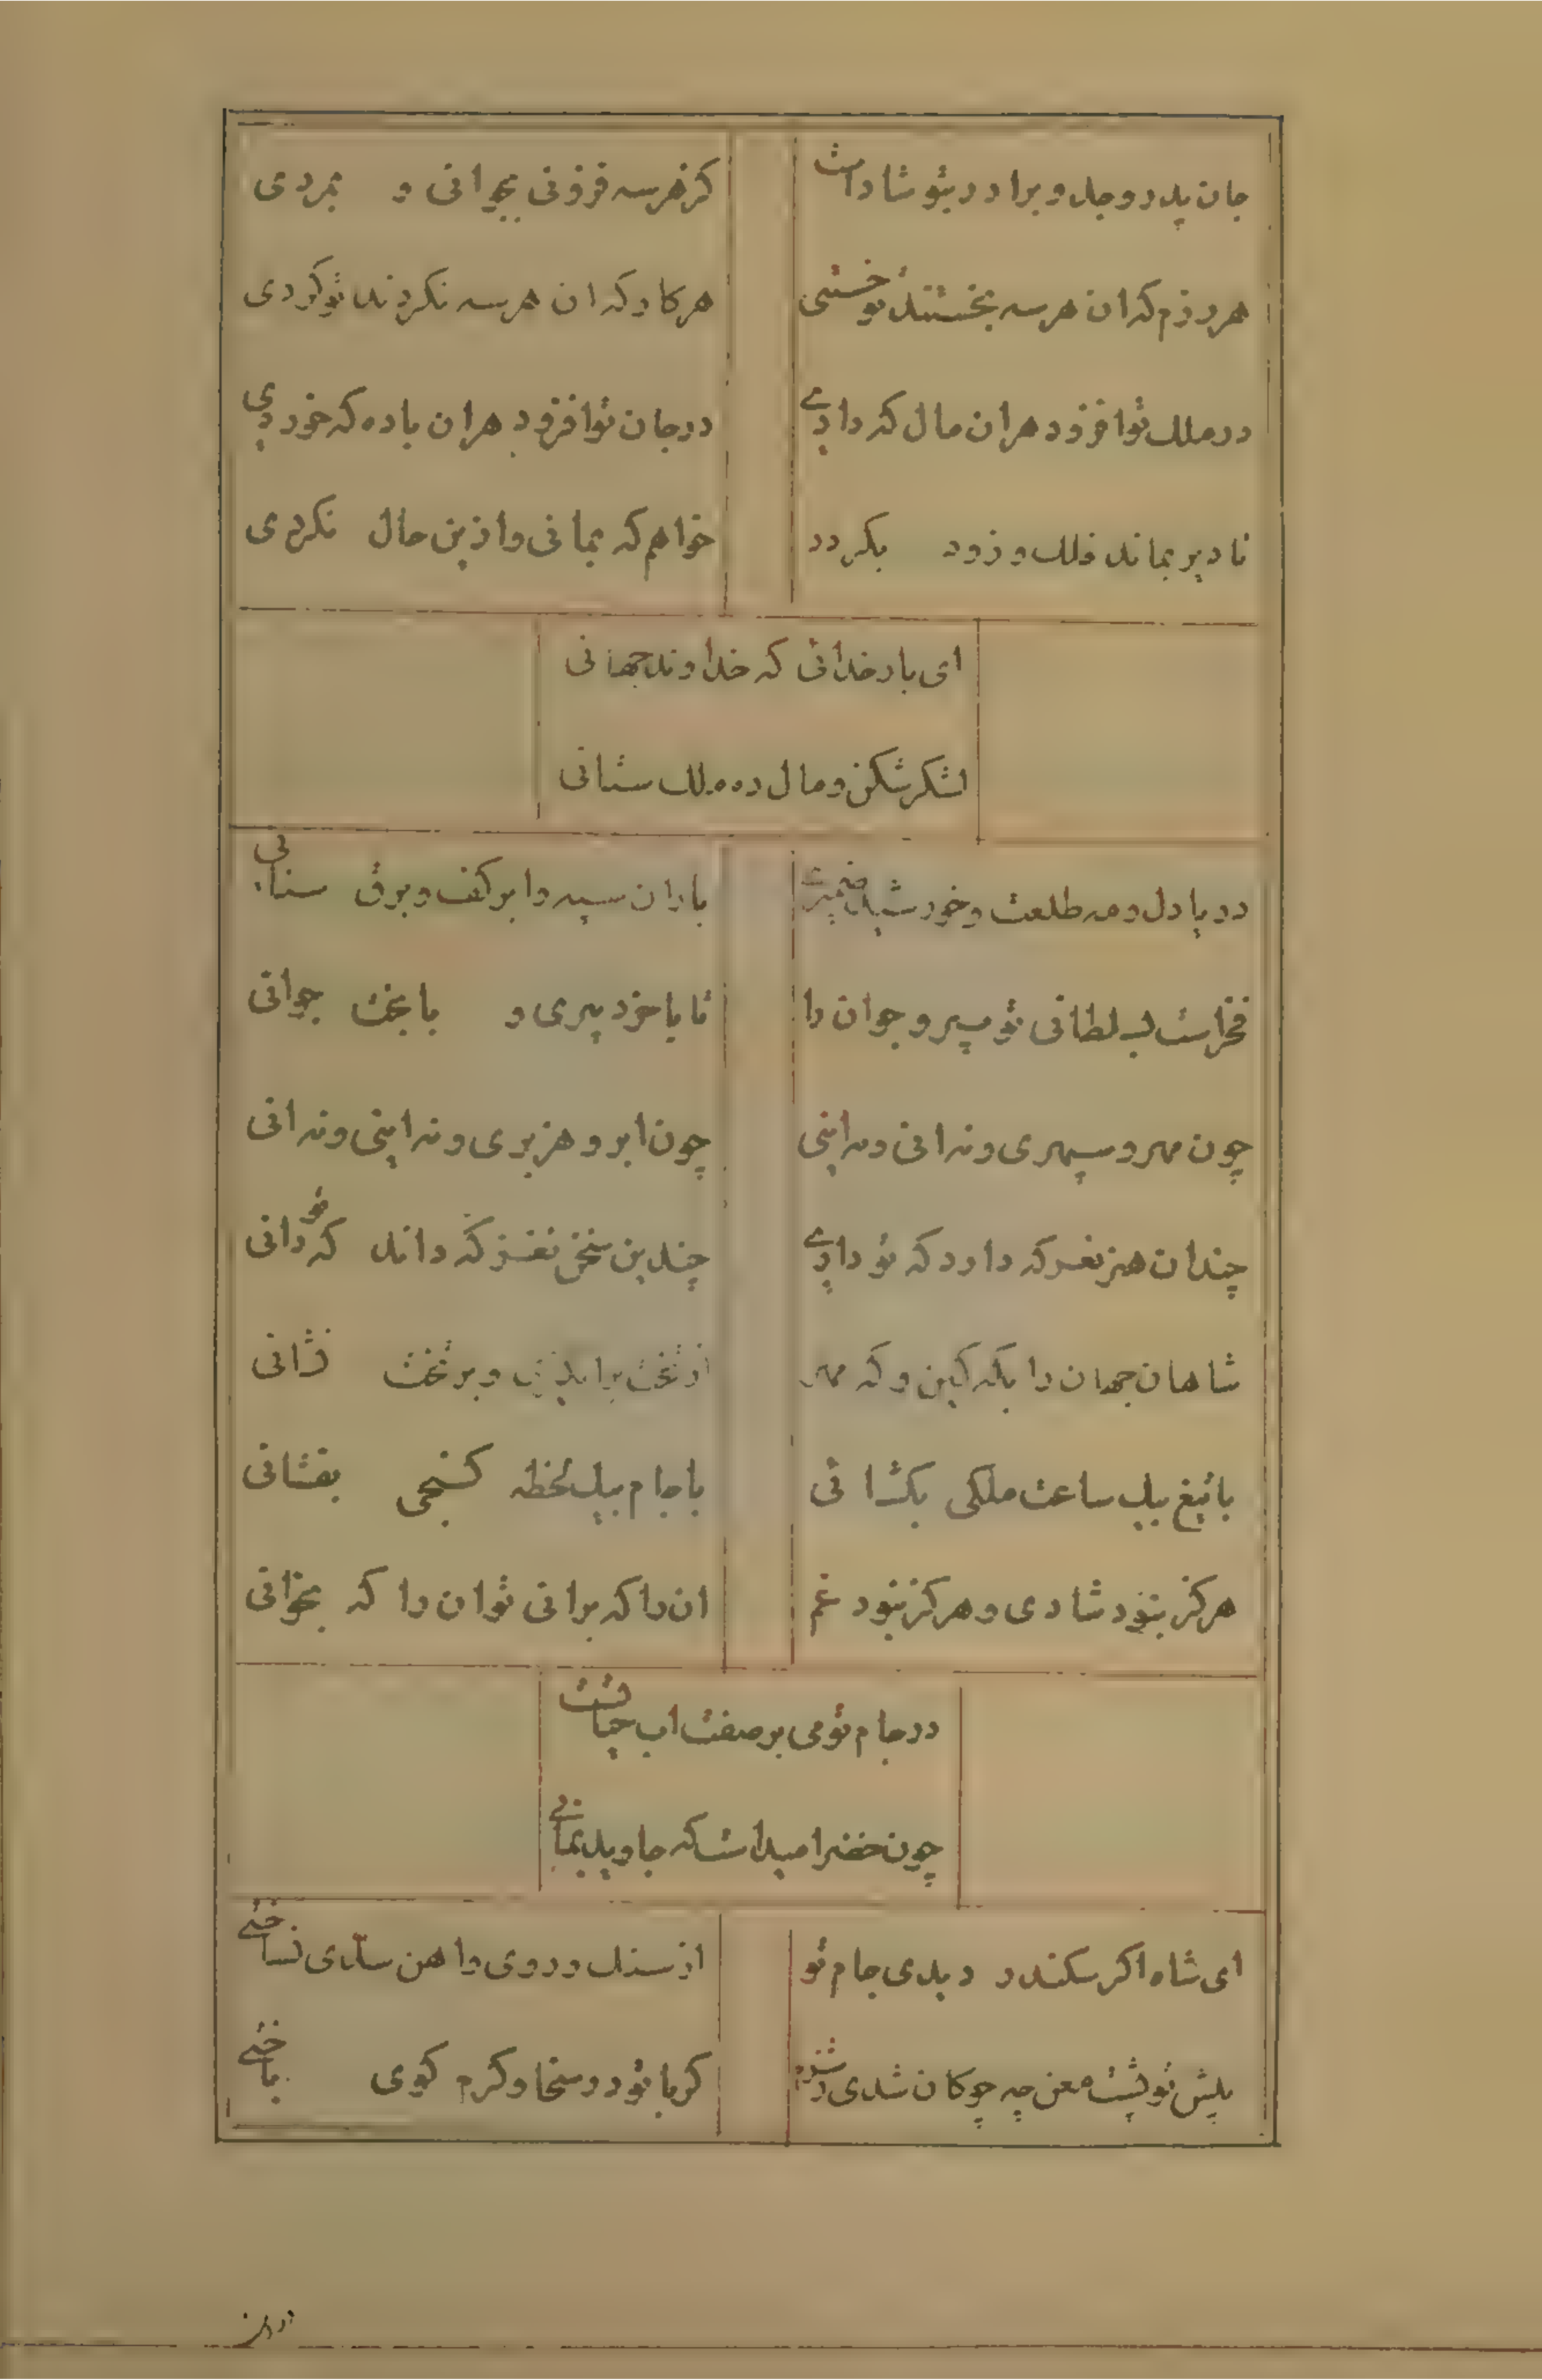 جان پدر و جد و برادر بتو شادست
کز هر سه فزونی بجوانی و بمردی
هر رزم که ان هر سه بخستند تو خستی
هر کار که ان هر سه نکردند تو کردی
در ملک تو افزود هر ان مال که دادی
در جان تو افزود هر ان باده که خوردی
تا دیر بماند فلک و زود بکردد
خواهم که بمانی و ازین حال نکردی
ای بار خدائی که خداوند جهانی
لشکر شکن و مال ده و ملک ستانی
دریا دل و مه طلعت و خورشید ضمیری
باران سپه و ابر کف و برق سنانی
فخرست بسلطانی تو پیر و جوان را
تا با خرد پیری و با بخت جوانی
چون مهر و سپهری و نه انی و نه اینی
چون ابر و هزبری و نه اینی و نه انی
چندان هنر نغز که دارد که تو داری
چندین سخن نغز که داند که تو دانی
شاهان جهان را بکه کین و که مهر
از تخت براندازی و بر تخت نشانی
با تیغ بیک ساعت ملکی بکشائی
با جام بیک لحظه کنجی بفشانی
هرکز نبود شادی و هرکز نبود غم
ان را که برانی تو ان را که بخوانی
در جام تو می بر صفت اب حیاتست
چون خضر امیدست که جاوید بمانی
ای شاه اکر سکندر دیدی جام تو
از سنک و روی و اهن سدی نساختی
پیش تو پشت معن چه چوکان شدی ز شرم
کر با تو در سخا و کرم کوی باختی